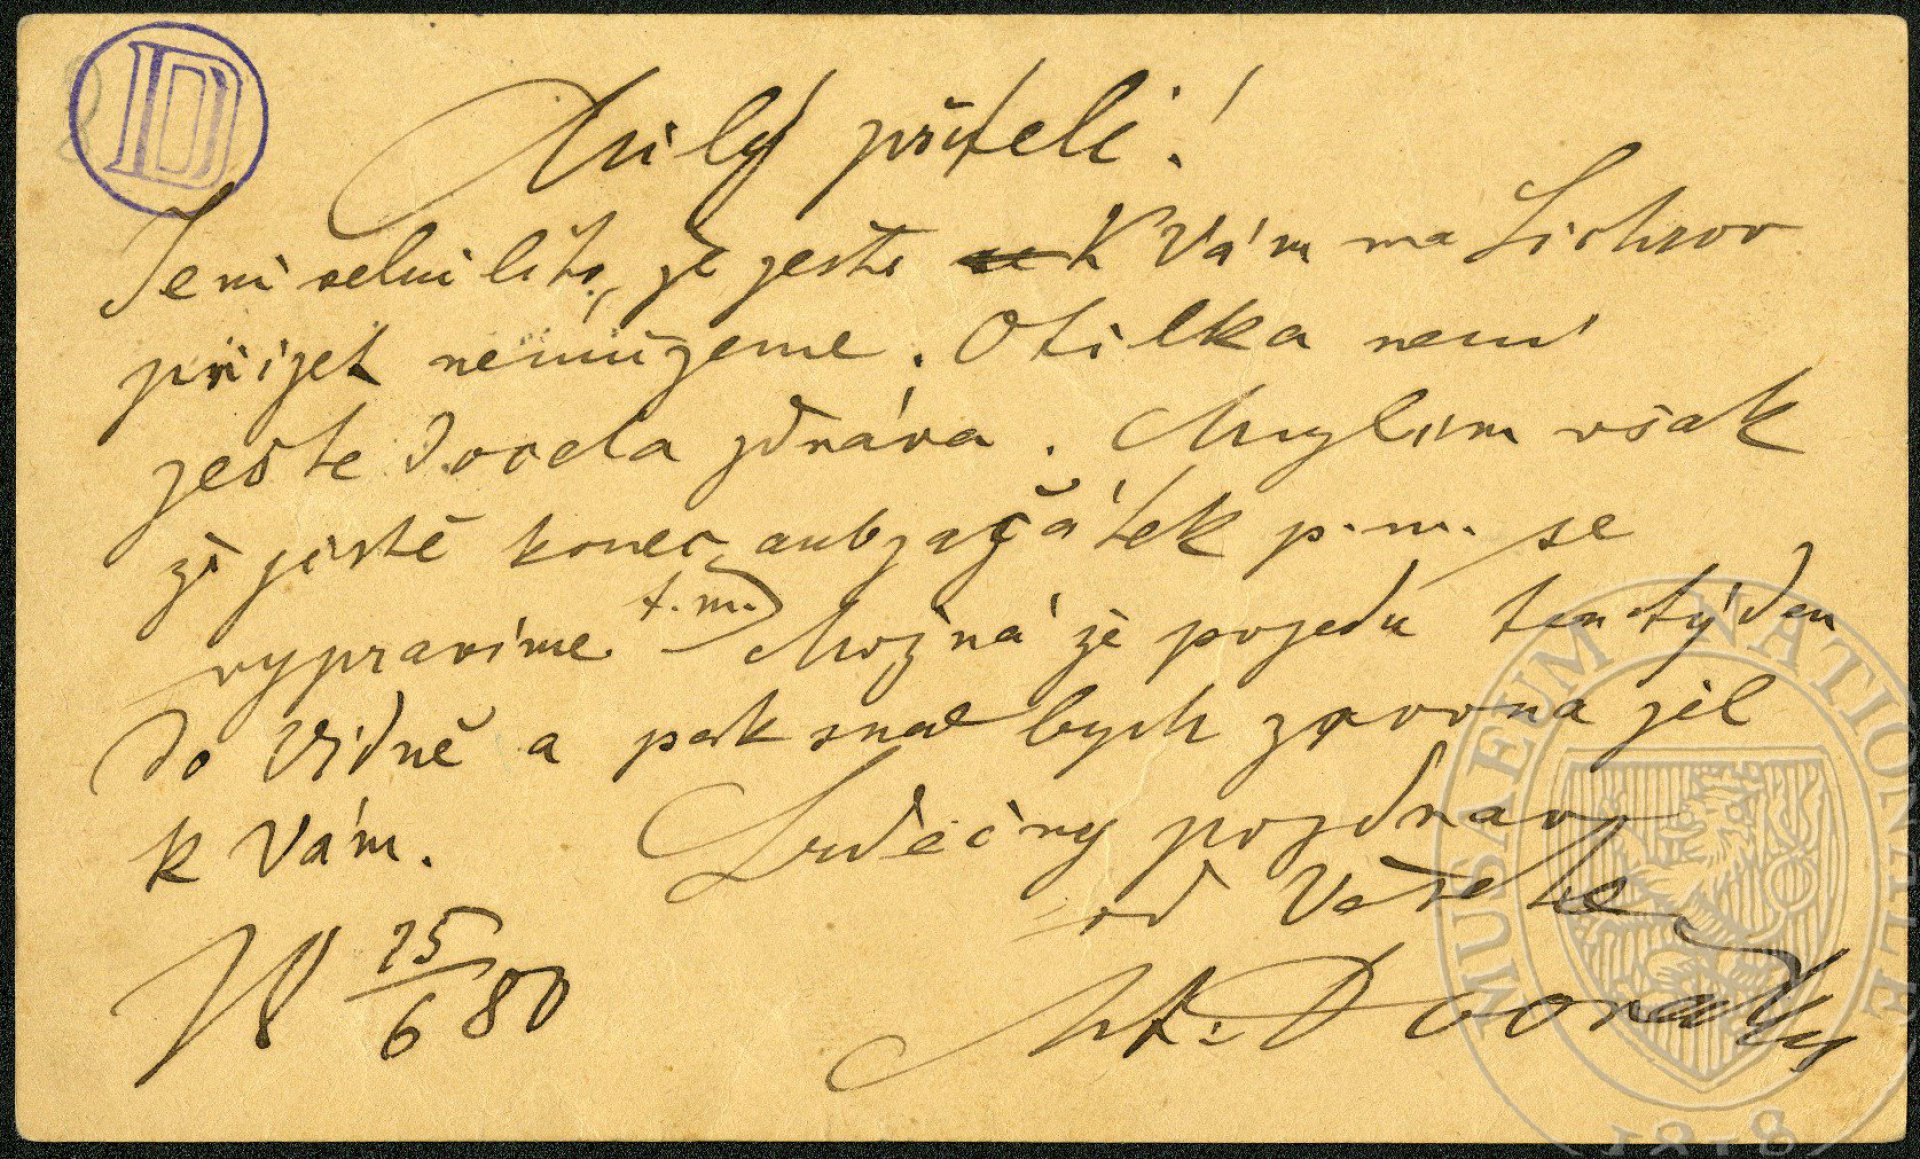 D
Milý příteli!
Je mi velmi líto, že ještě K Vám na Sichrov
přijet nemůžeme. Otilka není
ještě docela zdráva. Myslím však
že jistě konec, anb začátek p.m. se
t.m.
vypravíme. – Možná že pojedu ten týden
do Vídně a pak snad bych zrovna jel
k Vám. Srdečný pozdrav
od Vašeho
25/6 80
Ant. Dvořák
MUSAEUM NATIONALE
1818